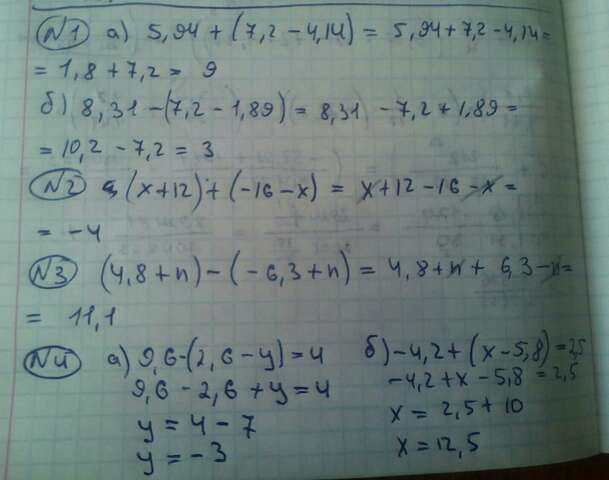 №1 а) 5,94 + (7,2 - 4,14) = 5,94 + 7,2 - 4,14 =
= 1,8 + 7,2 = 9
б) 8,31 - (7,2 - 1,89) = 8,31 - 7,2 + 1,89 =
= 10,2 - 7,2 = 3
№2 (x+12) + (-16 - x) = x + 12 - 16 - x =
= -4
№3 (4,8 + n) - (-6,3 + n) = 4,8 + n + 6,3 - n =
= 11,1
№4 а) 9,6 - (2,6 - y) = 4
9,6 - 2,6 + y = 4
y = 4 - 7
y = -3
б) -4,2 + (x - 5,8) = 2,5
-4,2 + x - 5,8 = 2,5
x = 2,5 + 10
x = 12,5